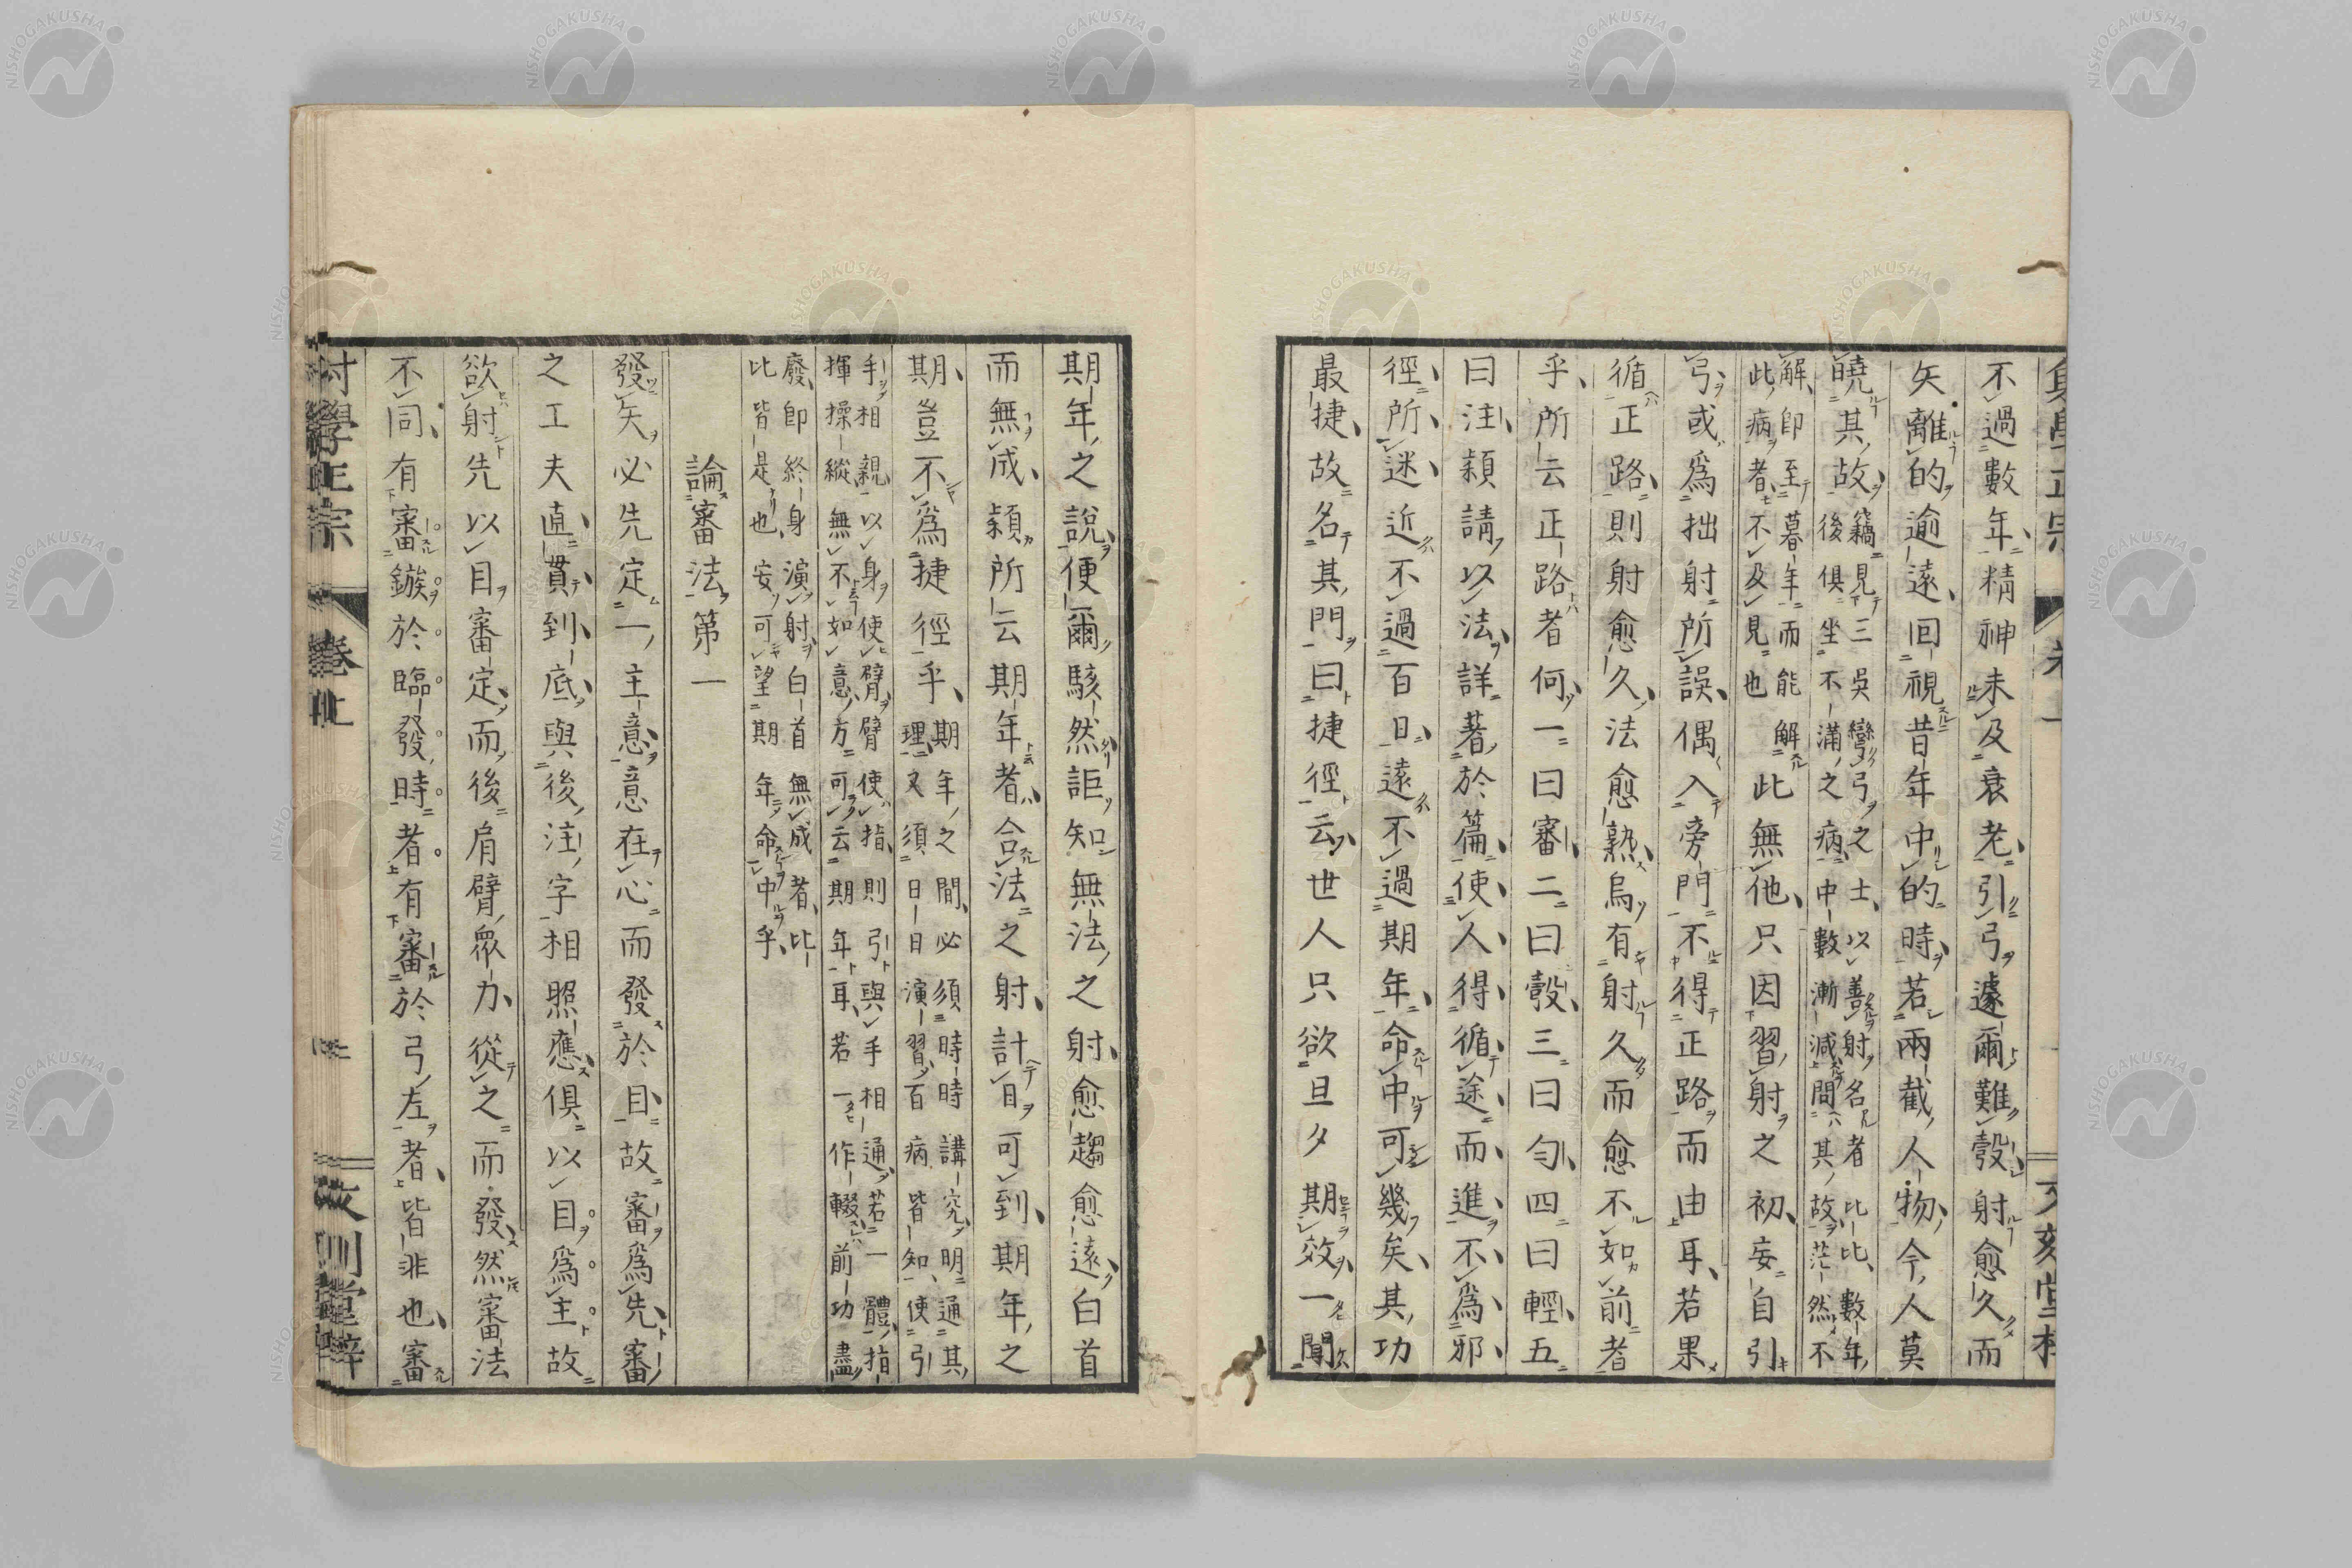 不過數年精神未及衰老引弓遽爾難彀射愈久而
矢離的逾遠回視昔年中的時若兩截人物今人莫
曉其故
竊見三吳彎弓之士以善射名者比比數年
後俱坐不滿之病中數漸減間其故茫然不
解即至暮年而能解
此病者不及見也
此無他只因習射之初妄自引
弓或爲拙射所誤偶入旁門不得正路而由耳若果
循正路則射愈久法愈熟烏有射久而愈不如前者
乎所云正路者何一曰審二曰彀三曰勻四曰輕五
曰注穎請以法詳著於篇使人得循途而進不爲邪
徑所迷近不過百日遠不過期年命中可幾矣其功
最捷故名其門曰捷徑云世人只欲旦夕期效一聞
期年之說便爾駭然詎知無法之射愈趨愈遠白首
而無成穎所云期年者合法之射計日可到期年之
期豈不爲捷徑乎
期年之間必須時時講究明通其
理又須日日演習百病皆知使引
手相親以身使臂臂使指則引與手相通若一體指
揮操縱無不如意方可云期年耳若一作輟前功盡
廢即終身演射白首無成者比
比皆是也安可望期年命中乎
論審法第一
發矢必先定一主意意在心而發於目故審爲先審
之工夫直貫到底與後注字相照應俱以目爲主故
欲射先以目審定而後肩臂眾力從之而發然審法
不同有審鏃於臨發時者有審於弓左者皆非也審
射學正宗
卷上